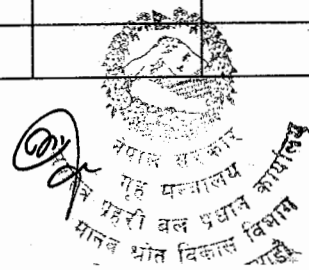 नेपाल सरकार
गृह मन्त्रालय
प्रहरी बल प्रधान कार्यालय
मानव श्रोत विकास विभाग